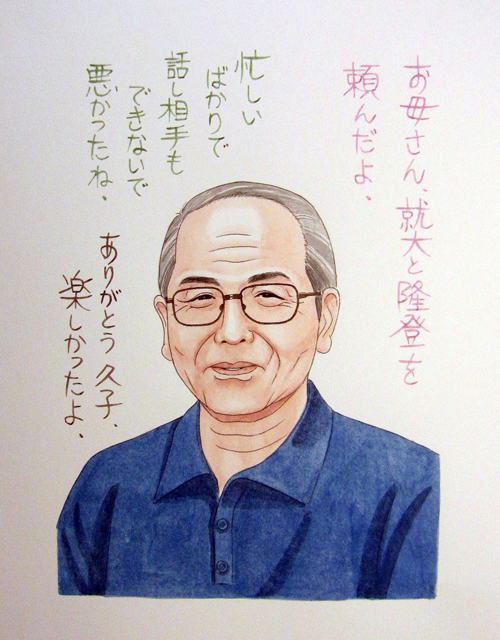 お母さん、就大と隆登を
頼んだよ、
忙しい
ばかりで
話し相手も
できないで
悪かったね、
ありがとう 久子、
楽しかったよ、